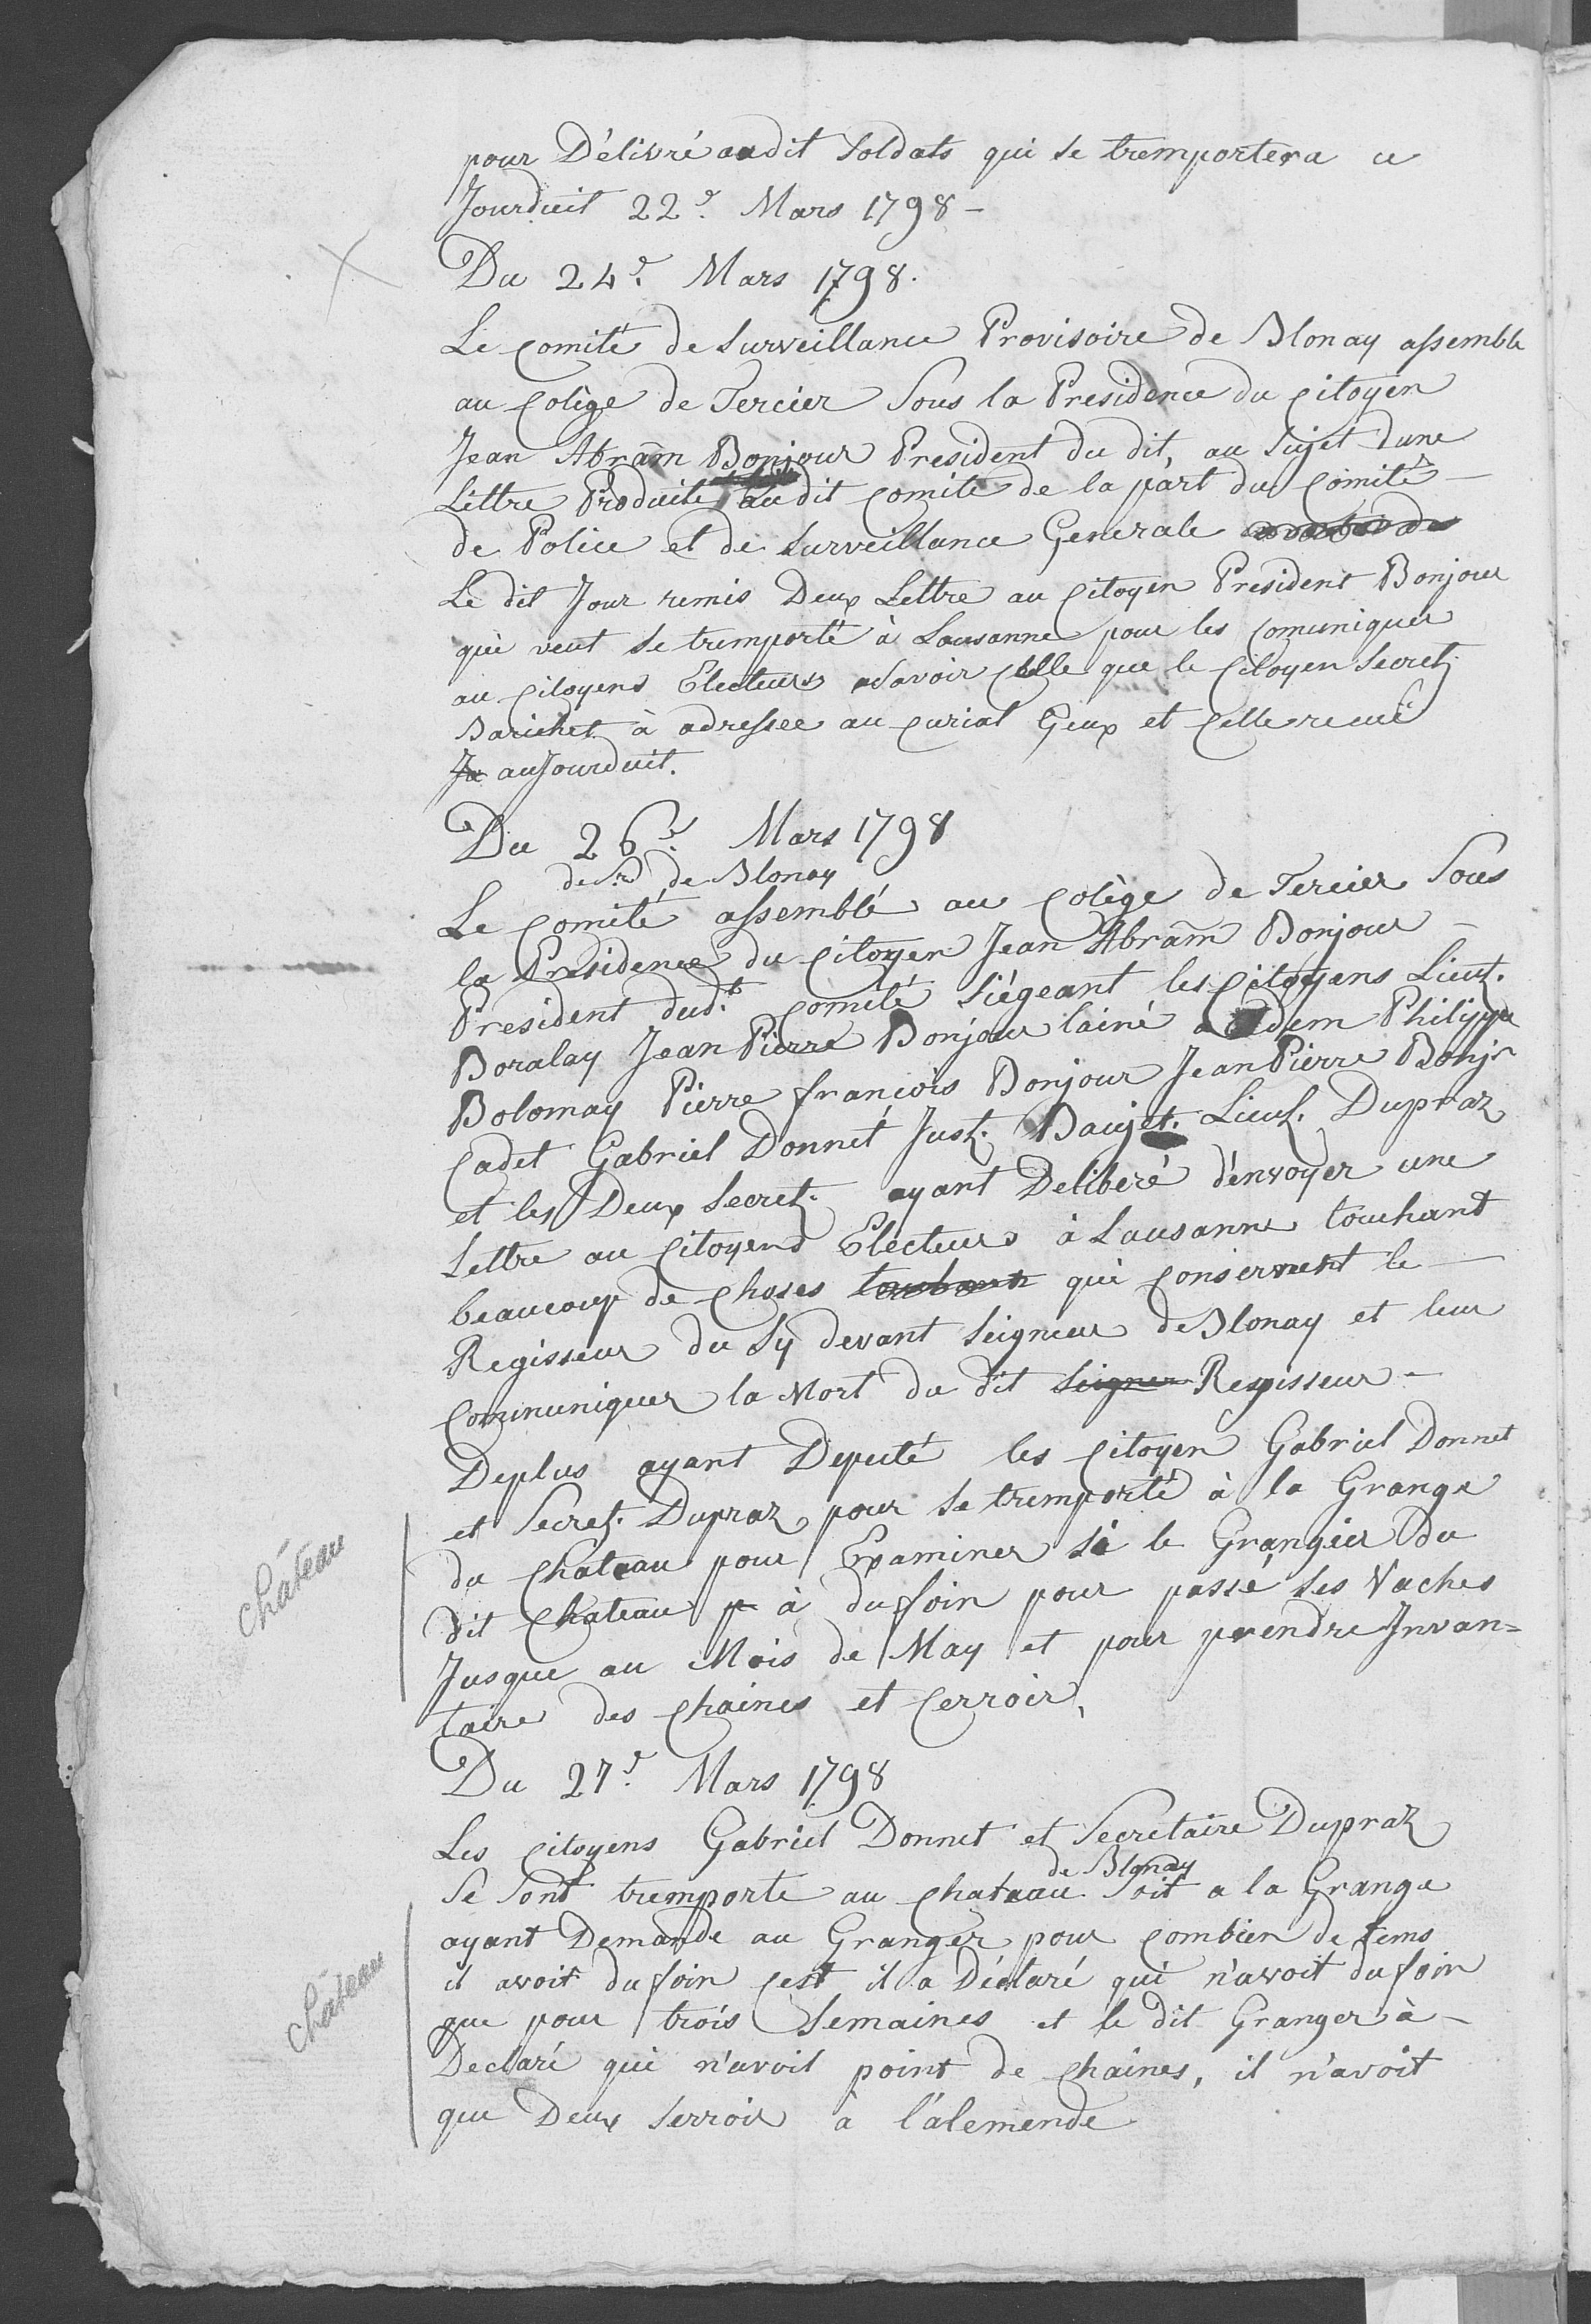 pour Délivré audit Soldats qui se tremportera ce
Jourduit 22e. Mars 1798 -
Du 24e. Mars 1798.
Le Comité de Surveillance Provisoire de Blonay assemble
au Colége de Tercier Sous la Presidence du Citoyen
Jean Abram Bonjour President du dit, au Sujet dune
Lettre Produite au dit Comité de la part du Comité -
de Police et de Surveillance Generale
Le dit Jour remis Deux Lettre au Citoyen President Bonjour
qui veut se tremporté à Lausanne pour les Comuniquer
au Citoyens Electeurs Savoir Celle que le Citoyen Secret.
Barichet à adressee au Curial Geux et Celle recue
Ja auJourduit.
Du 26e. Mars 1798
de Sd de Blonay
Le Comité assemblé au Colége de Tercier Sous
la Presidence du Citoyen Jean Abram Bonjour -
President dudt. Comité Siégeant les Citoyens Lieut.
Boralay Jean Pierre Bonjour lainé Adem Philippe
Bolomay Pierre françois Bonjour Jean Pierre Bonjr
Cadet Gabriel Donnet Just. Baujet. Lieut. Dupraz
et les Deux Secret. ayant Deliberé d'envoyer une
Lettre au Citoyens Electeurs à Lausanne touchant
beaucoup de Choses touchant qui Conservent le -
Regisseur du Sy devant Seigneur de Blonay et leur
Communiquer la Mort du dit Seigneu Regisseur -
Deplus ayant Deputé les Citoyen Gabriel Donnet
et Secret. Dupraz pour se tremporté à la Grange
du Chateau pour Examiner si le Grangier du
dit Chateau p à du foin pour passé ses Vaches
Jusque au Mois de May et pour prendre Invan=
taire des Chaines et Cerroir,
Château
Du 27e. Mars 1798
Les Citoyens Gabriel Donnet et Secretaire Dupraz
de Blonay
Se Sont tremporte au Chateau Soit a la Grange
ayant Demande au Granger pour Combien de tems
il avoit du foin Cest il a Déclaré qui n'avoit du foin
que pour trois Semaines et le dit Granger à -
Declaré qui n'avoit point de Chaines, il n'avoit
que Deux Serroir à l'alemende
Château